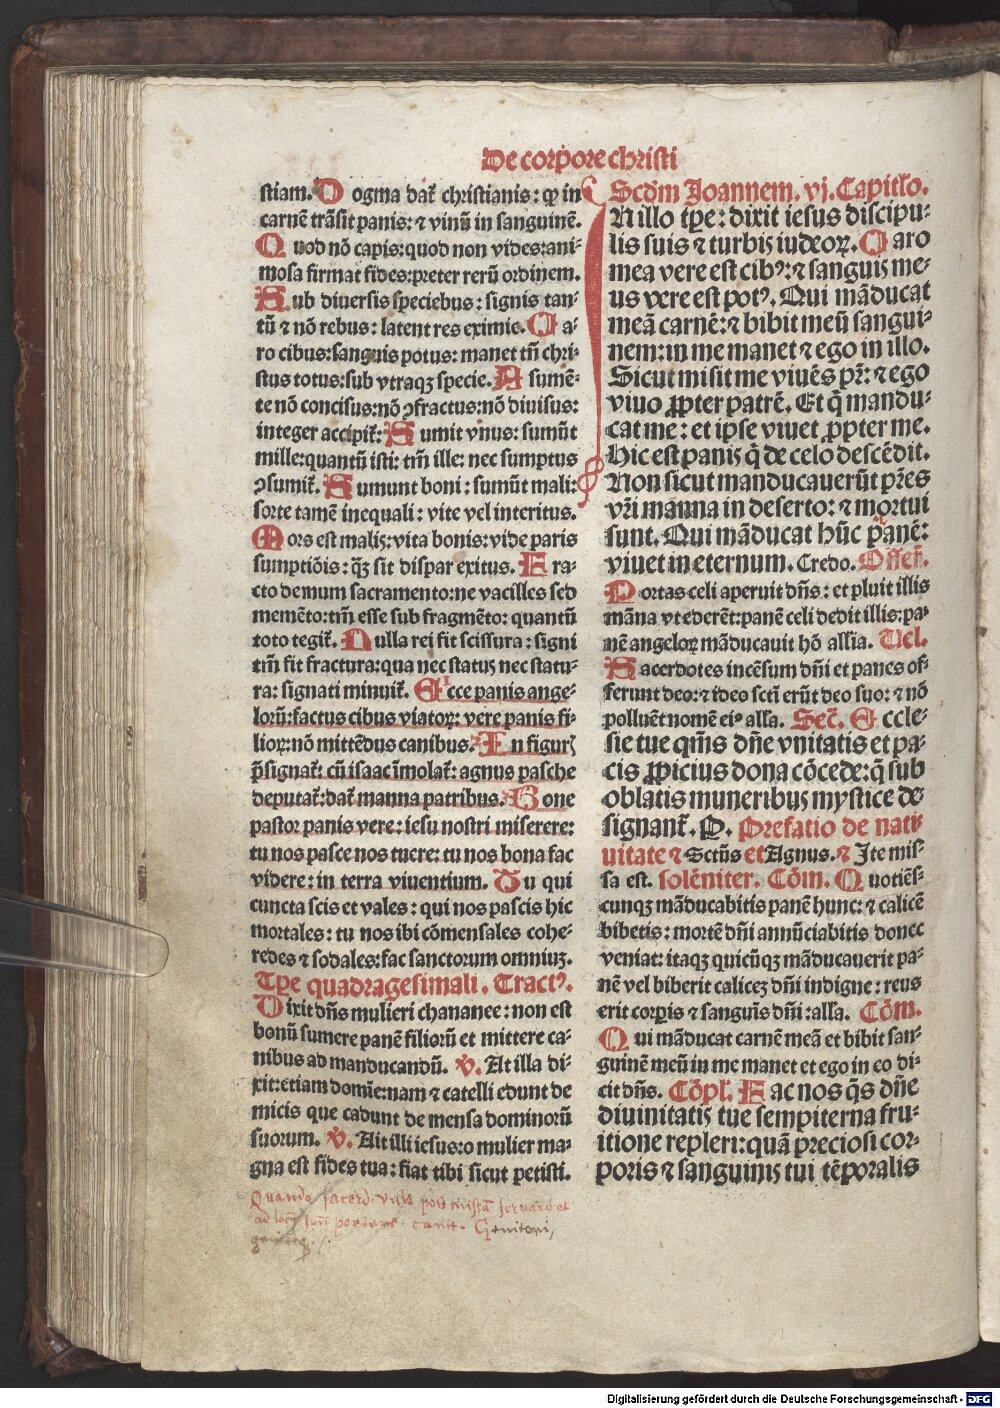 De corpore christi
stiam. Dogma dat᷑ christianis: qꝫ in
carnē trāsit panis: ⁊ vinū in sanguinē.
Quod nō capis: quod non vides: ani-
mosa firmat fides: preter rerū ordinem.
Sub diuersis speciebus: signis tan-
tū ⁊ nō rebus: latent res eximie. Ca-
ro cibus: sanguis potus: manet tñ chri-
stus totus: sub vtraqꝫ specie. A sumē-
te nō concisus: nō ꝯfractus: nō diuisus:
integer accipit᷑: Sumit vnus: sumūt
mille: quantū isti: tm̄ ille: nec sumptus
ꝯsumit᷑. Sumunt boni: sumūt mali:
sorte tamē inequali: vite vel interitus.
Mors est malis: vita bonis: vide paris
sumptiōis: qꝫ̄ sit dispar exitus. Fra-
cto demum sacramento: ne vacilles sed
memēto: tm̄ esse sub fragmēto: quantū
toto tegit᷑. Nulla rei fit scissura: signi
tm̄ fit fractura: qua nec status nec statu-
ra: signati minuit᷑. Ecce panis ange-
lorū: factus cibus viatoꝝ: vere panis fi-
lioꝝ: nō mittēdus canibus. In figurꝭ
p̄signat᷑: cū isaac īmolat᷑: agnus pasche
deputat᷑: dat᷑ manna patribus. Bone
pastor panis vere: iesu nostri miserere:
tu nos pasce nos tuere: tu nos bona fac
videre: in terra viuentium. Tu qui
cuncta scis et vales: qui nos pascis hic
mortales: tu nos ibi cōmensales cohe-
redes ⁊ sodales: fac sanctorum omniuꝫ.
Tꝑe quadragesimali. Tractꝰ.
Dixit dn̄s mulieri chananee: non est
bonū sumere panē filiorū et mittere ca-
nibus ad manducandū. ℣. At illa di-
xit: etiam domīe: nam ⁊ catelli edunt de
micis que cadunt de mensa dominorū
suorum. ℣. Ait illi iesus: o mulier ma-
gna est fides tua: fiat tibi sicut petisti.
Quando sacerd. vult post missā servare et
ad locū suū portare. canit. Genitori,
Scd̄m Joannem. vj. Capitl̄o.
IN illo tꝑe: dixit iesus discipu-
lis suis ⁊ turbis iudeoꝝ. Caro
mea vere est cibꝰ: ⁊ sanguis me-
us vere est potꝰ. Qui māducat
meā carnē: ⁊ bibit meū sangui-
nem: in me manet ⁊ ego in illo.
Sicut misit me viuēs pr̄: ⁊ ego
viuo ꝓpter patrē. Et q̄ mandu-
cat me: et ipse viuet ꝓpter me.
Hic est panis q̄ de celo descēdit.
Non sicut manducauerūt pr̄es
vr̄i manna in deserto: ⁊ mortui
sunt. Qui māducat hūc panē:
viuet in eternum. Credo. Offert᷑.
Portas celi aperuit dn̄s: et pluit illis
māna vt ederēt: panē celi dedit illis: pa-
nē angeloꝝ māducauit hō allīa. Vel.
Sacerdotes incēsum dn̄i et panes of-
ferunt deo: ⁊ ideo sct̄i erūt deo suo: ⁊ nō
polluēt nomē eiꝰ all̄a. Sec̄. Eccle-
sie tue qm̄s dn̄e vnitatis et pa-
cis ꝓpicius dona cōcede: q̄ sub
oblatis muneribus mystice de-
signant᷑. P. Prefatio de nati-
uitate ⁊ Sct̄us et Agnus. ⁊ Ite mis-
sa est. solēniter. Cōm. Quotiēs-
cunqꝫ māducabitis panē hunc: ⁊ calicē
bibetis: mortē dn̄i annūciabitis donec
veniat: itaqꝫ quicūqꝫ māducauerit pa-
nē vel biberit caliceꝫ dn̄i indigne: reus
erit corꝑis ⁊ sanguīs dn̄i: all̄a. Cōm.
Qui māducat carnē meā et bibit san-
guinē meū in me manet et ego in eo di-
cit dn̄s. Cōpl̄. Fac nos q̄s dn̄e
diuinitatis tue sempiterna fru-
itione repleri: quā preciosi cor-
poris ⁊ sanguinis tui tēporalis
Digitalisierung gefördert durch die Deutsche Forschungsgemeinschaft - DFG